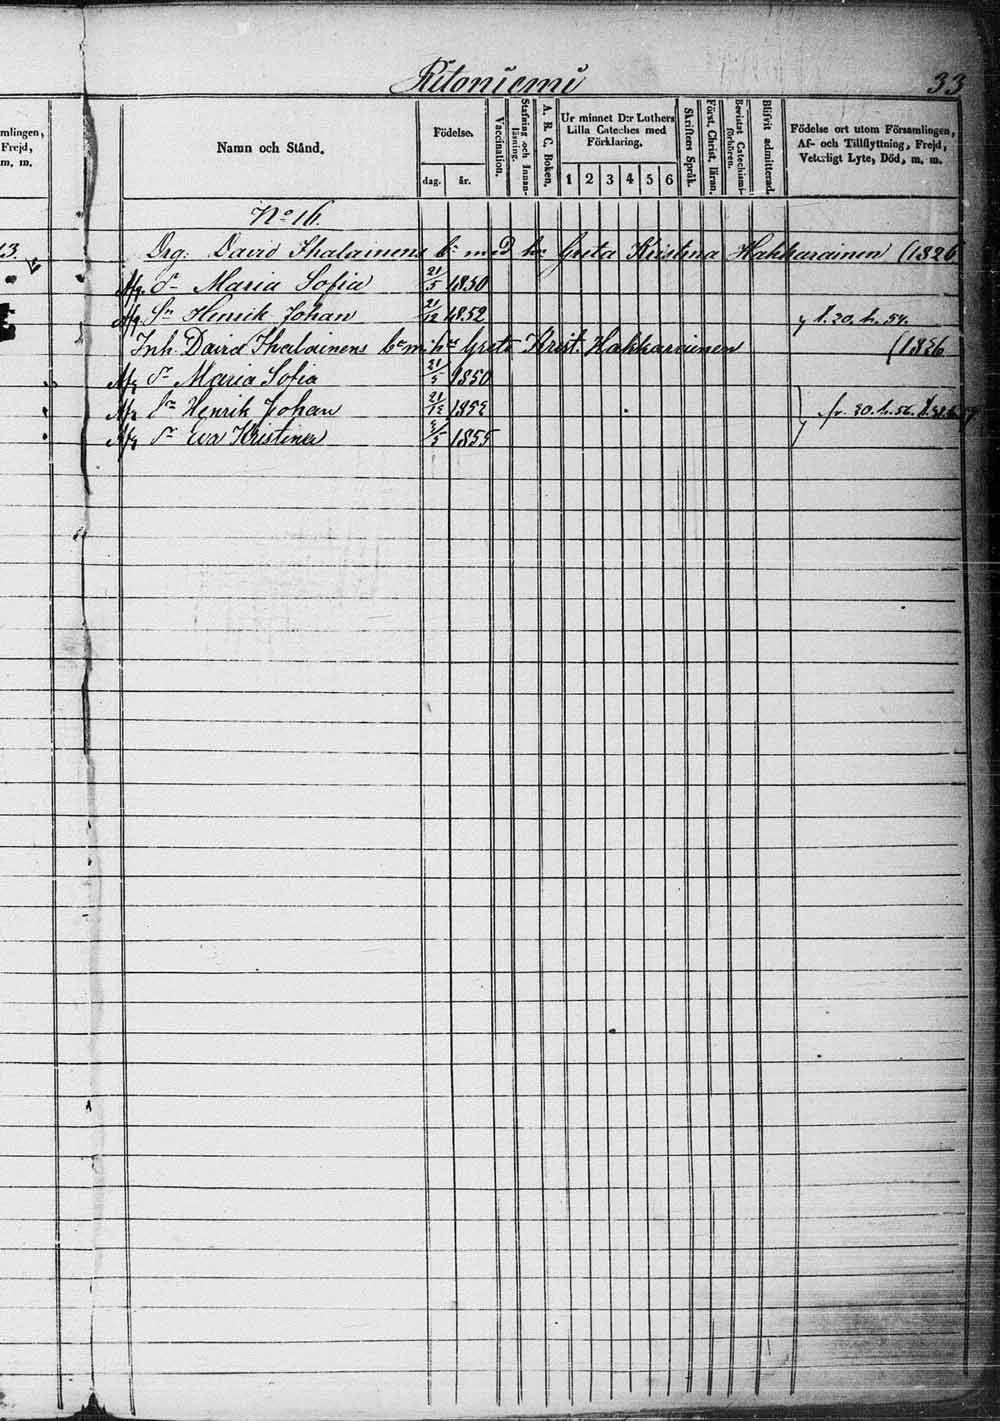 Ritoniemi 33
mlingen,
Frejd,
m. m.
Namn och Stånd.
Födelse.
dag. år.
Vaccination.
Stafning och Innan-
läsning.
A. B. C. Boken.
Ur minnet D:r Luthers
Lilla Cateches med
Förklaring.
1 2 3 4 5 6
Skriftens Språk.
Först. Christ. läran.
Bevistat Catechismi-
förhören.
Blifvit admitterad.
Födelse ort utom Församlingen,
Af- och Tillflyttning, Frejd,
Veterligt Lyte, Död, m. m.
No 16.
13.
Drg: David Ihalainens med Greta Kristina Hakkarainen (1826
Maria Sofia 21/5 1850
Sn Henrik Johan 21/12 1852
Inh. David Ihalainens Greta Krist. Hakkarainen (1826
Maria Sofia 21/5 1850
Henrik Johan 21/12 1852
Eva Kristina 1855